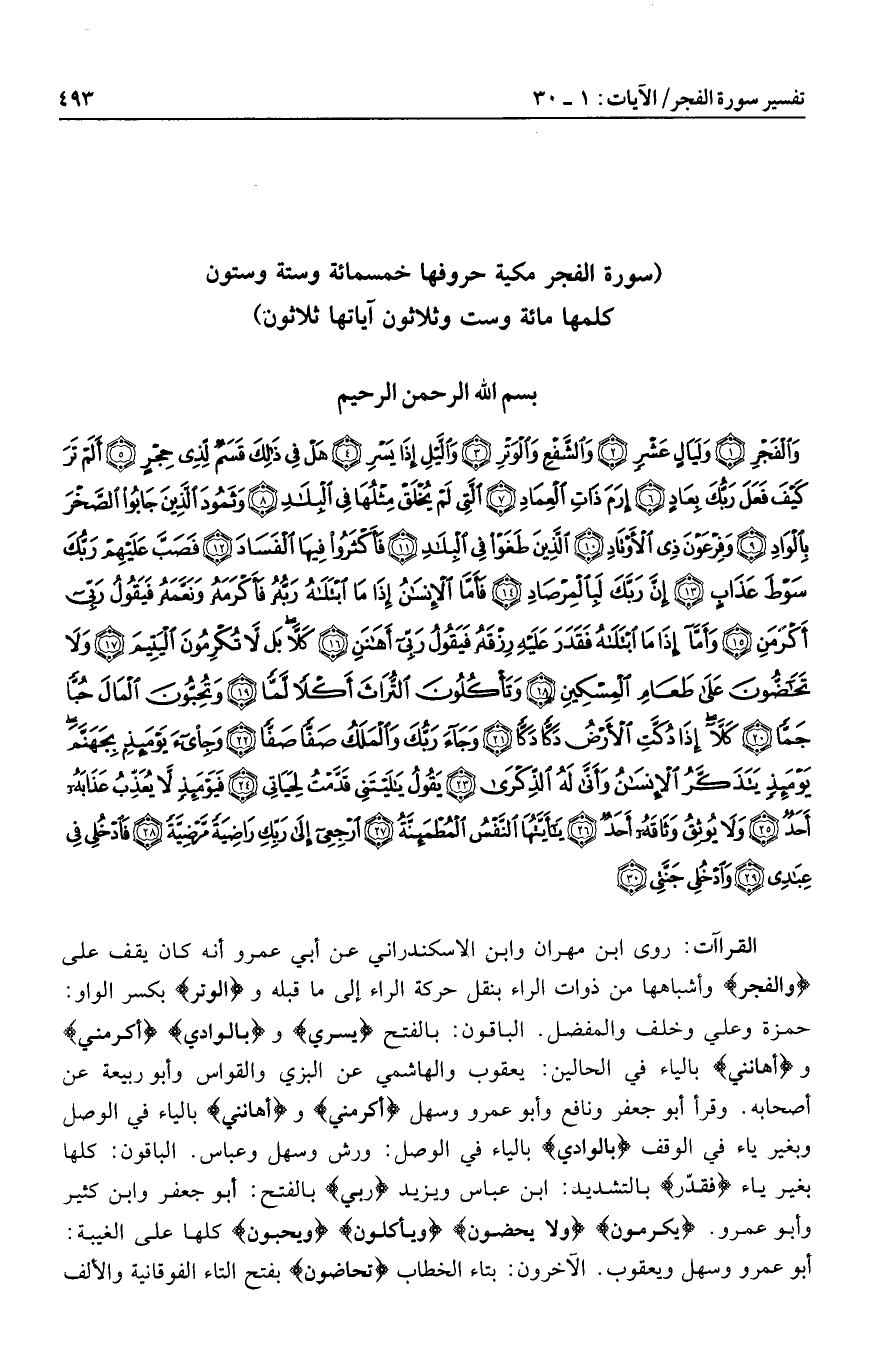 تفسير سورة الفجر/ الآيات: ١ ـ ٣٠ ٤٩٣
(سورة الفجر مكية حروفها خمسمائة وستة وستون
كلمها مائة وست وثلاثون آياتها ثلاثون)
بسم الله الرحمن الرحيم
وَٱلْفَجْرِ ۝١ وَلَيَالٍ عَشْرٍ ۝٢ وَٱلشَّفْعِ وَٱلْوَتْرِ ۝٣ وَٱلَّيْلِ إِذَا يَسْرِ ۝٤ هَلْ فِى ذَٰلِكَ قَسَمٌ لِّذِى حِجْرٍ ۝٥ أَلَمْ تَرَ
كَيْفَ فَعَلَ رَبُّكَ بِعَادٍ ۝٦ إِرَمَ ذَاتِ ٱلْعِمَادِ ۝٧ ٱلَّتِى لَمْ يُخْلَقْ مِثْلُهَا فِى ٱلْبِلَـٰدِ ۝٨ وَثَمُودَ ٱلَّذِينَ جَابُوا۟ ٱلصَّخْرَ
بِٱلْوَادِ ۝٩ وَفِرْعَوْنَ ذِى ٱلْأَوْتَادِ ۝١٠ ٱلَّذِينَ طَغَوْا۟ فِى ٱلْبِلَـٰدِ ۝١١ فَأَكْثَرُوا۟ فِيهَا ٱلْفَسَادَ ۝١٢ فَصَبَّ عَلَيْهِمْ رَبُّكَ
سَوْطَ عَذَابٍ ۝١٣ إِنَّ رَبَّكَ لَبِٱلْمِرْصَادِ ۝١٤ فَأَمَّا ٱلْإِنسَـٰنُ إِذَا مَا ٱبْتَلَىٰهُ رَبُّهُۥ فَأَكْرَمَهُۥ وَنَعَّمَهُۥ فَيَقُولُ رَبِّىٓ
أَكْرَمَنِ ۝١٥ وَأَمَّآ إِذَا مَا ٱبْتَلَىٰهُ فَقَدَرَ عَلَيْهِ رِزْقَهُۥ فَيَقُولُ رَبِّىٓ أَهَـٰنَنِ ۝١٦ كَلَّا ۖ بَل لَّا تُكْرِمُونَ ٱلْيَتِيمَ ۝١٧ وَلَا
تَحَـٰٓضُّونَ عَلَىٰ طَعَامِ ٱلْمِسْكِينِ ۝١٨ وَتَأْكُلُونَ ٱلتُّرَاثَ أَكْلًا لَّمًّا ۝١٩ وَتُحِبُّونَ ٱلْمَالَ حُبًّا
جَمًّا ۝٢٠ كَلَّآ ۖ إِذَا دُكَّتِ ٱلْأَرْضُ دَكًّا دَكًّا ۝٢١ وَجَآءَ رَبُّكَ وَٱلْمَلَكُ صَفًّا صَفًّا ۝٢٢ وَجِا۟ىٓءَ يَوْمَئِذٍۭ بِجَهَنَّمَ ۚ
يَوْمَئِذٍ يَتَذَكَّرُ ٱلْإِنسَـٰنُ وَأَنَّىٰ لَهُ ٱلذِّكْرَىٰ ۝٢٣ يَقُولُ يَـٰلَيْتَنِى قَدَّمْتُ لِحَيَاتِى ۝٢٤ فَيَوْمَئِذٍ لَّا يُعَذِّبُ عَذَابَهُۥٓ
أَحَدٌ ۝٢٥ وَلَا يُوثِقُ وَثَاقَهُۥٓ أَحَدٌ ۝٢٦ يَـٰٓأَيَّتُهَا ٱلنَّفْسُ ٱلْمُطْمَئِنَّةُ ۝٢٧ ٱرْجِعِىٓ إِلَىٰ رَبِّكِ رَاضِيَةً مَّرْضِيَّةً ۝٢٨ فَٱدْخُلِى فِى
عِبَـٰدِى ۝٢٩ وَٱدْخُلِى جَنَّتِى ۝٣٠
القراآت: روى ابن مهران وابن الاسكندراني عن أبي عمرو أنه كان يقف على
﴿والفجر﴾ وأشباهها من ذوات الراء بنقل حركة الراء إلى ما قبله و ﴿الوتر﴾ بكسر الواو:
حمزة وعلي وخلف والمفضل. الباقون: بالفتح ﴿يسري﴾ و ﴿بالوادي﴾ ﴿أكرمني﴾
و ﴿أهانني﴾ بالياء في الحالين: يعقوب والهاشمي عن البزي والقواس وأبو ربيعة عن
أصحابه. وقرأ أبو جعفر ونافع وأبو عمرو وسهل ﴿أكرمني﴾ و ﴿أهانني﴾ بالياء في الوصل
وبغير ياء في الوقف ﴿بالوادي﴾ بالياء في الوصل: ورش وسهل وعباس. الباقون: كلها
بغير ياء ﴿فقدّر﴾ بالتشديد: ابن عباس ويزيد ﴿ربي﴾ بالفتح: أبو جعفر وابن كثير
وأبو عمرو. ﴿يكرمون﴾ ﴿ولا يحضون﴾ ﴿ويأكلون﴾ ﴿ويحبون﴾ كلها على الغيبة:
أبو عمرو وسهل ويعقوب. الآخرون: بتاء الخطاب ﴿تحاضون﴾ بفتح التاء الفوقانية والألف